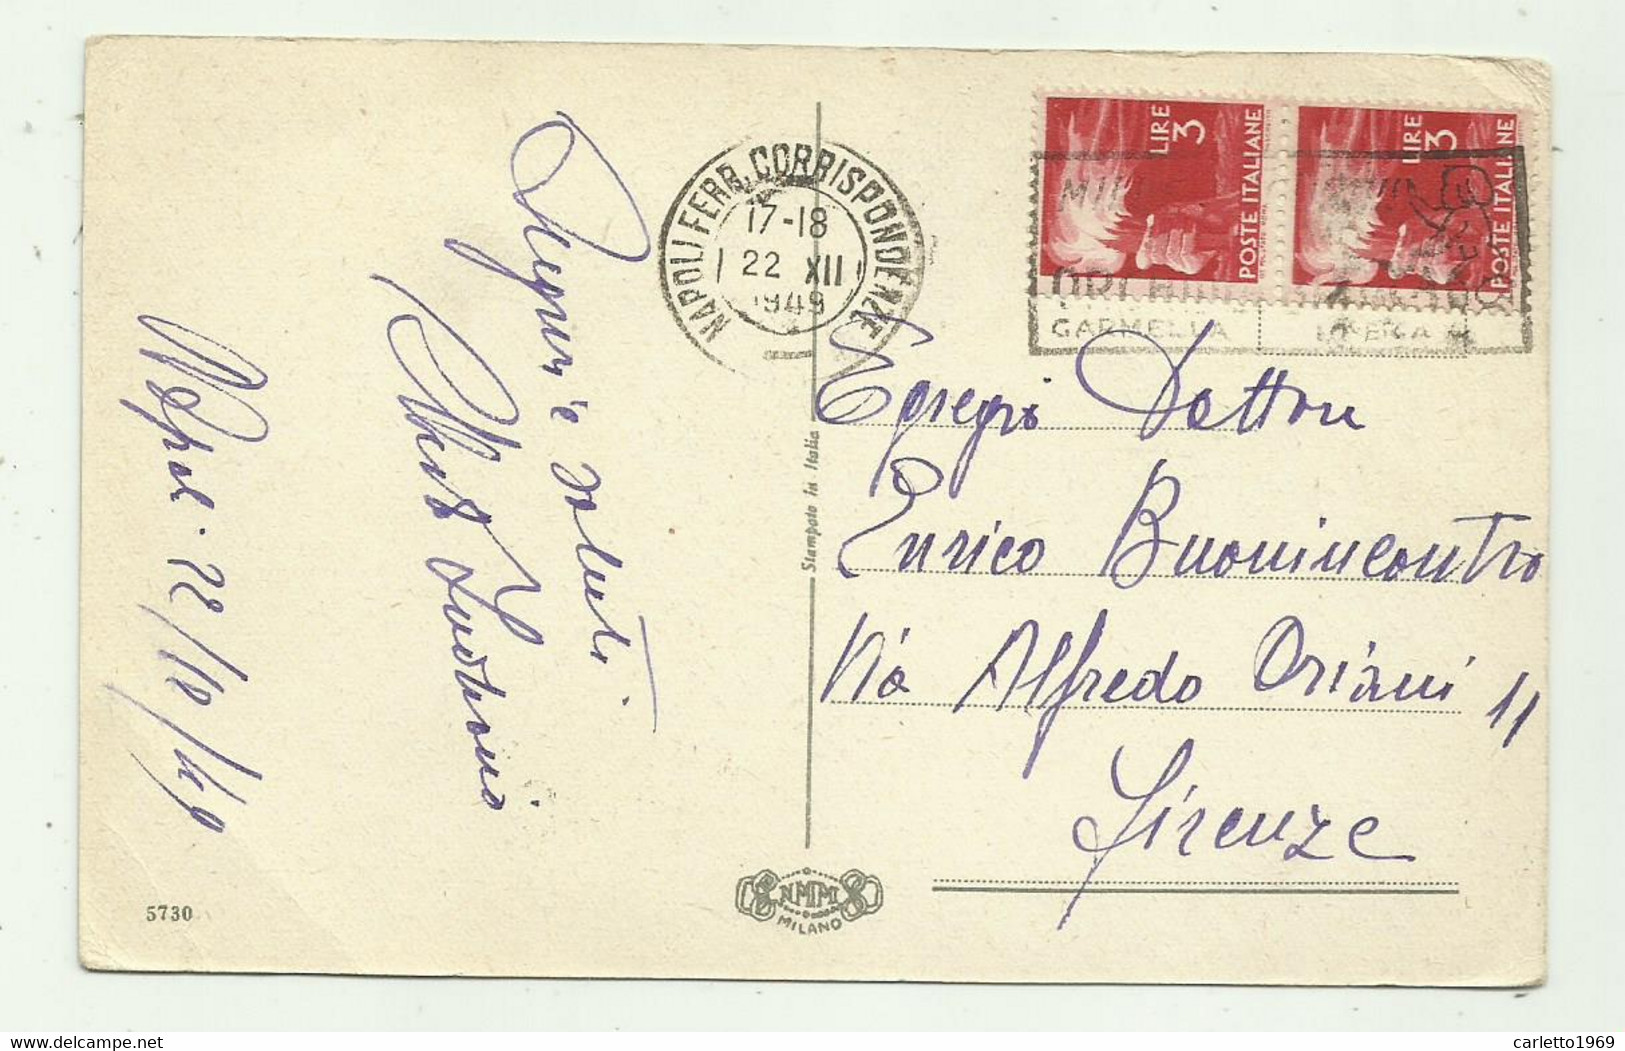 Auguri e saluti
Napoli 22/12/49
5730
NAPOLI FERR. CORRISPONDENZE
17-18
22 XII
1949
Stampato in Italia
NMM
MILANO
LIRE 3
POSTE ITALIANE
LIRE 3
POSTE ITALIANE
Egregio Dottore
Enrico Buonincontro
Via Alfredo Oriani 11
Firenze
delcampe.net
carletto1969